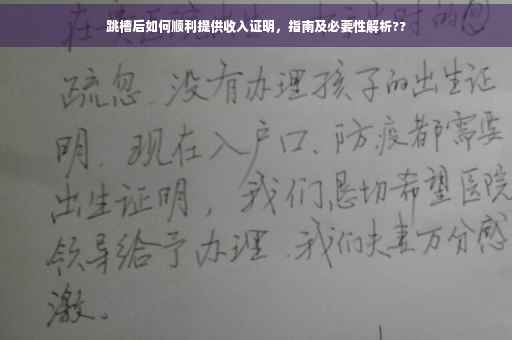 跳槽后如何顺利提供收入证明，指南及必要性解析??
疏忽、没有办理孩子的出生证
明、现在入户口、防疫都需要
出生证明，我们恳切希望医院
领导给予办理、我们夫妻万分感
激。